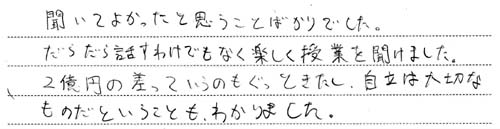 聞いてよかったと思うことばかりでした。
だらだら話すわけでもなく楽しく授業を聞けました。
2億円の差っていうのもぐっときたし、自立は大切な
ものだということも、わかりました。